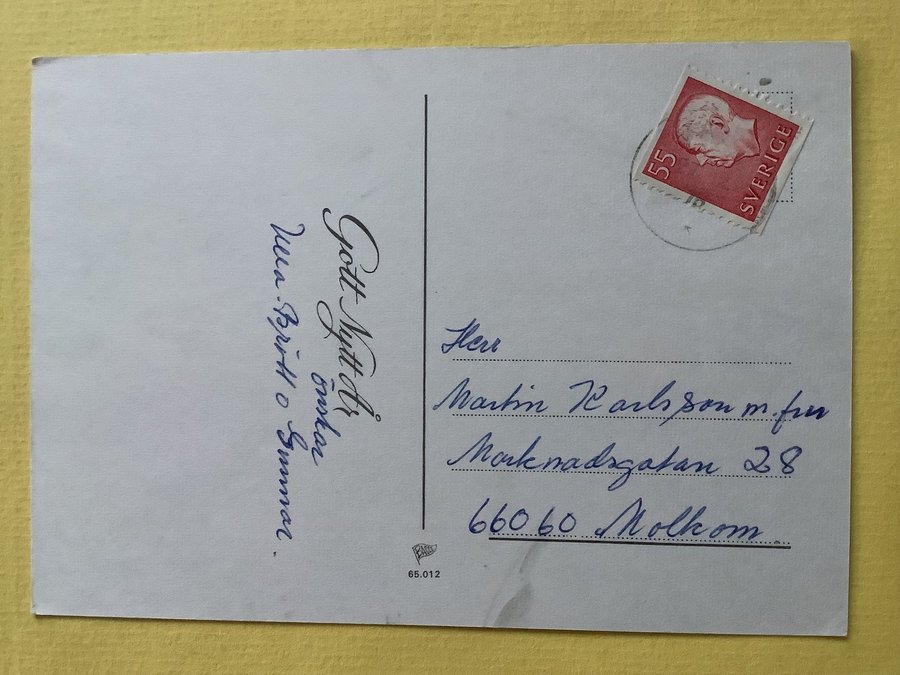 Gott Nytt År
önskar
Britt o Gunnar.
55
SVERIGE
Herr
Martin Karlsson m. fru
Marknadsgatan 28
66060 Molkom
65.012